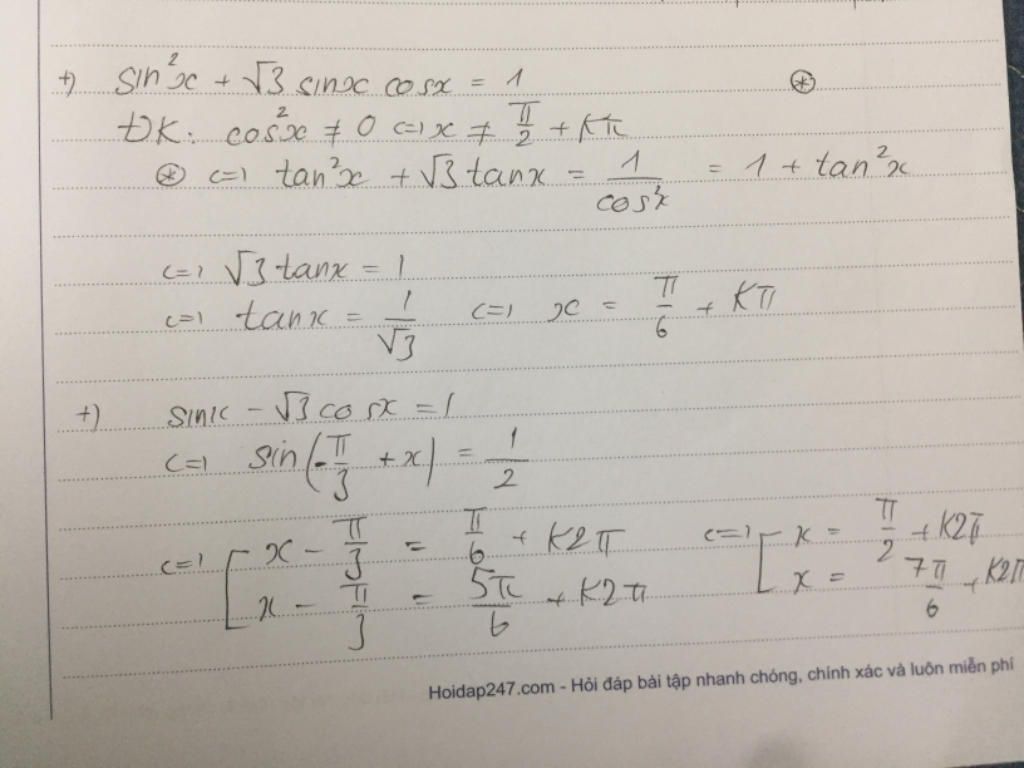 +) sin²x + √3 sinx cosx = 1 (*)
ĐK: cos²x ≠ 0 <=> x ≠ π/2 + Kπ
(*) <=> tan²x + √3 tanx = 1/cos²x = 1 + tan²x
<=> √3 tanx = 1
<=> tanx = 1/√3 <=> x = π/6 + Kπ
+) sinx - √3 cosx = 1
<=> sin(-π/3 + x) = 1/2
<=> [ x - π/3 = π/6 + K2π <=> [ x = π/2 + K2π
x - π/3 = 5π/6 + K2π x = 7π/6 + K2π
Hoidap247.com - Hỏi đáp bài tập nhanh chóng, chính xác và luôn miễn phí